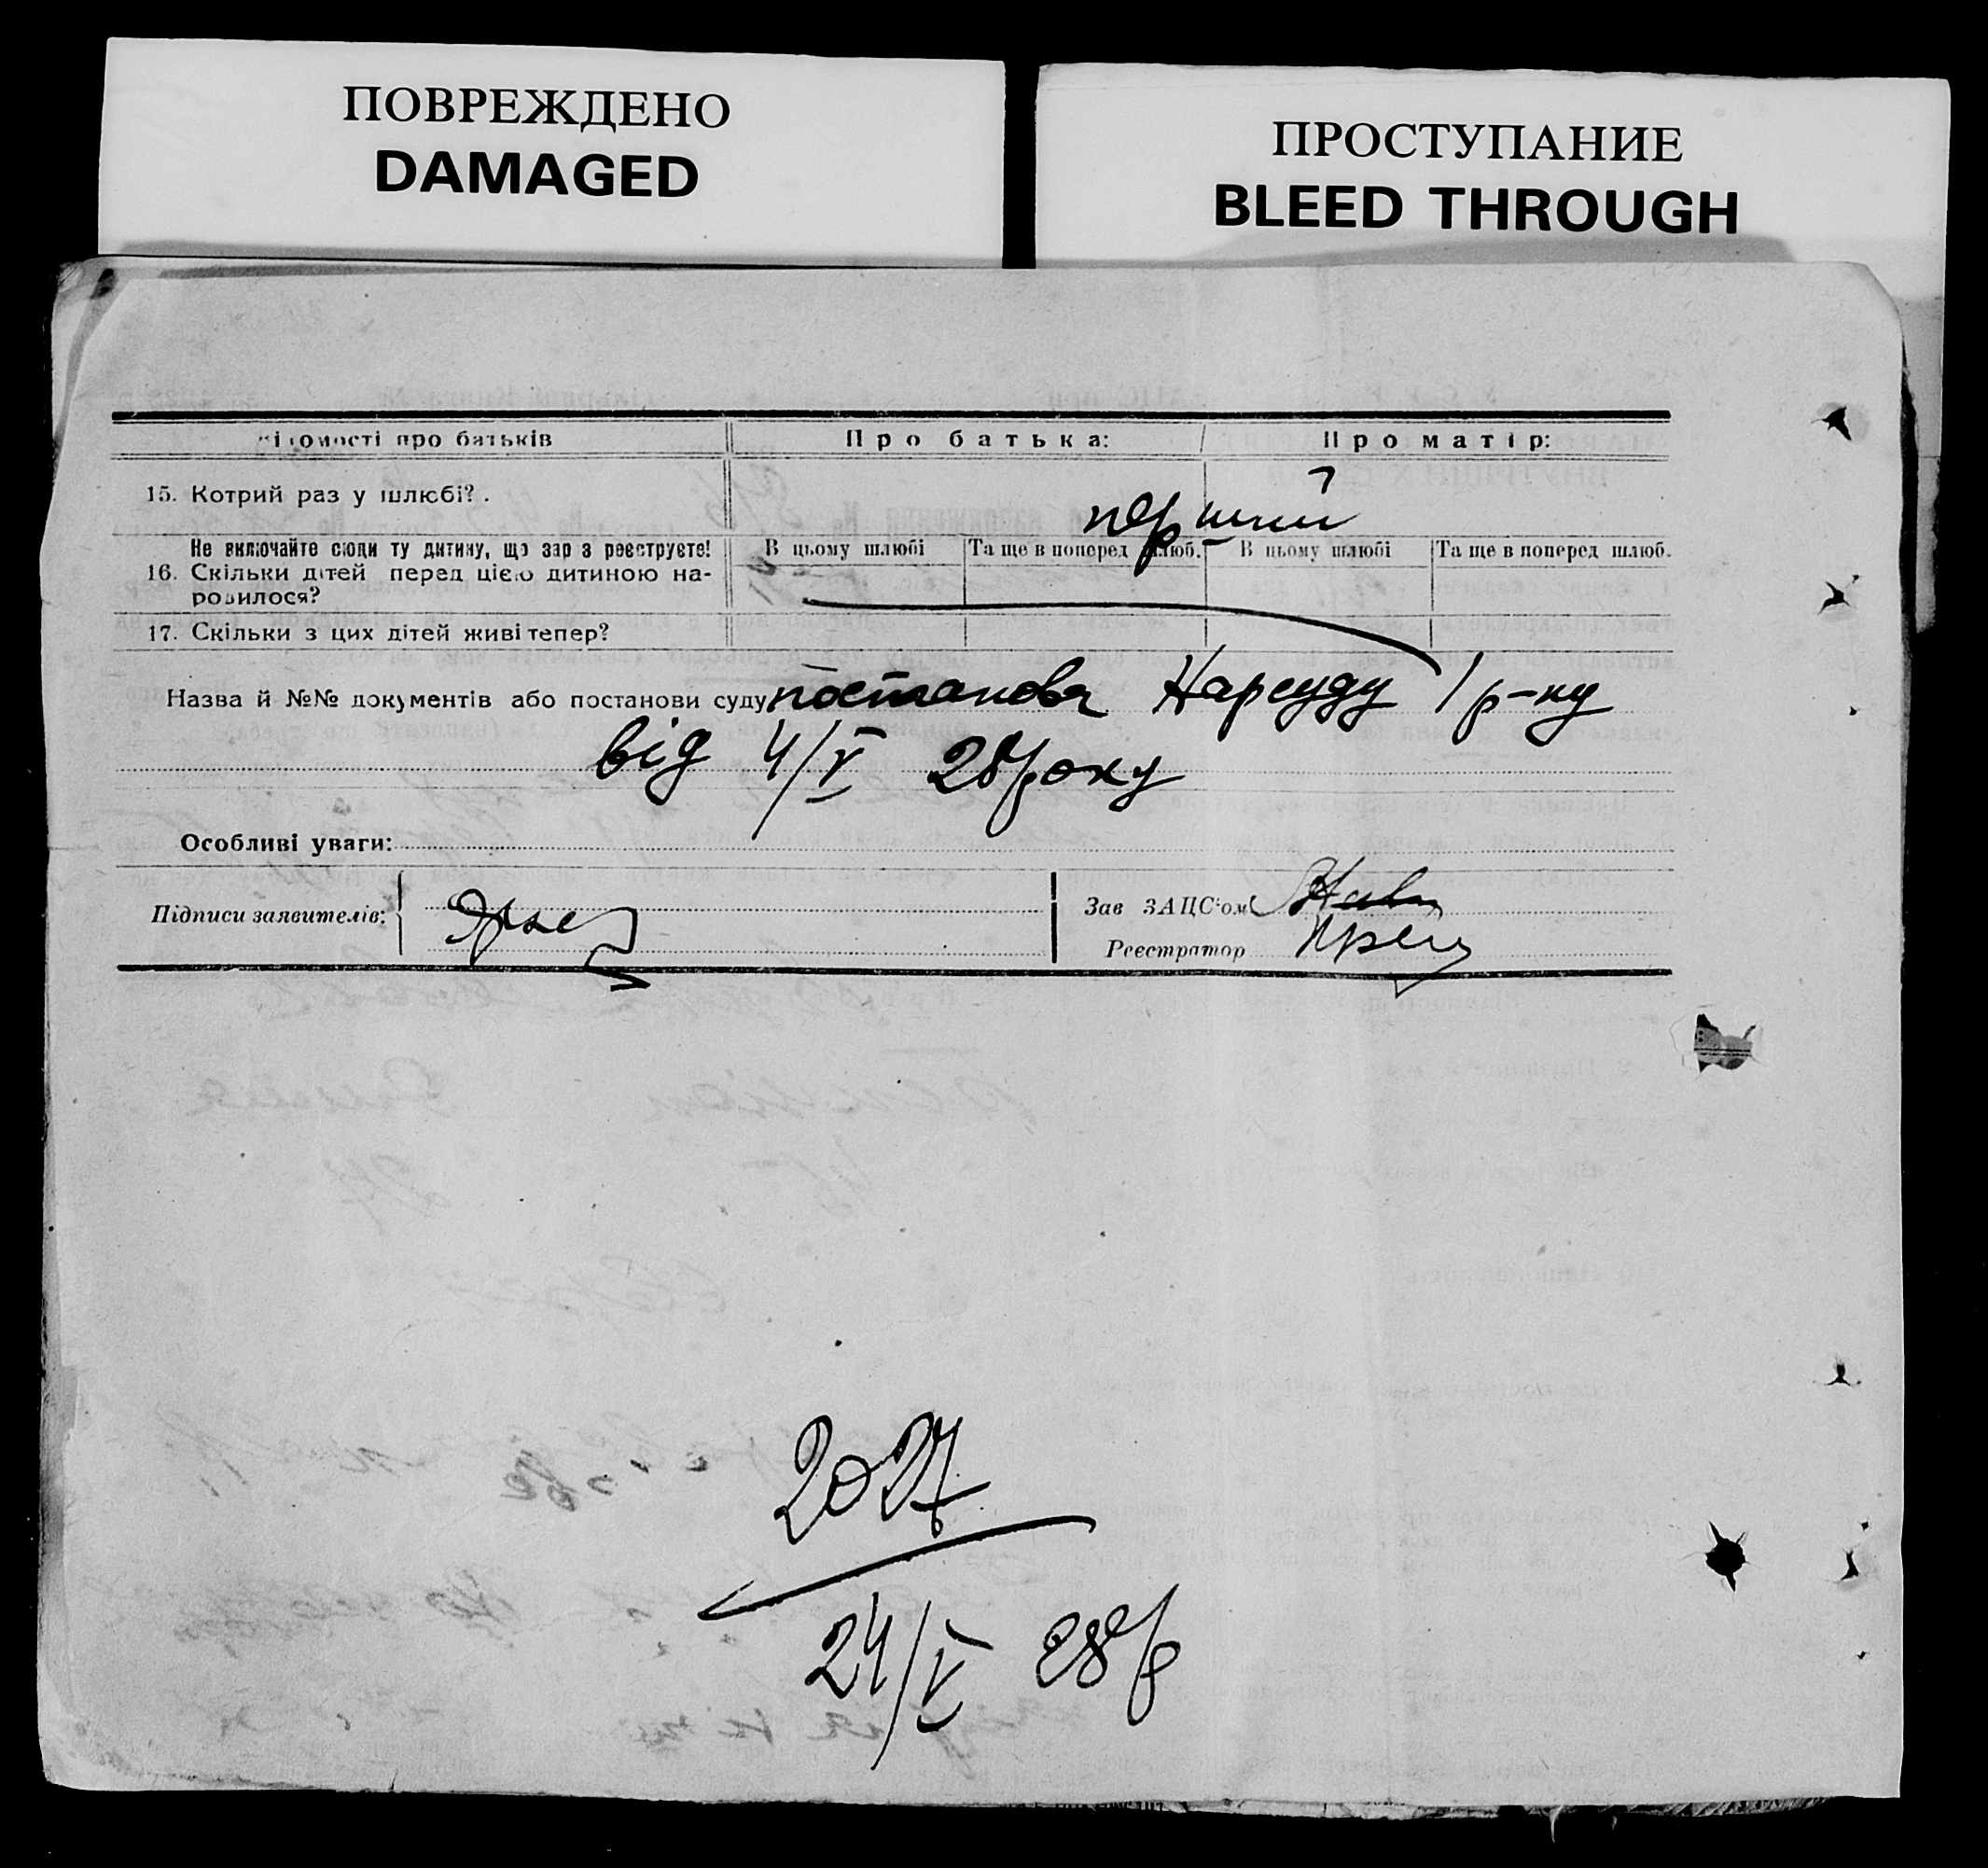 ПОВРЕЖДЕНО
DAMAGED
ПРОСТУПАНИЕ
BLEED THROUGH
відомості про батьків
Про батька:
Про матір:
15. Котрий раз у шлюбі?.
перший
Не включайте сюди ту дитину, що зараз реєструєте!
16. Скільки дітей перед цією дитиною на-
родилося?
В цьому шлюбі
Та ще в поперед шлюб.
В цьому шлюбі
Та ще в поперед шлюб.
17. Скільки з цих дітей живі тепер?
Назва й №№ документів або постанови суду постанова Нарсуду 1 р-ну
від 4/V 28 року
Особливі уваги:
Підписи заявителів:
Зав ЗАЦС'ом
Реєстратор
2027
24/V 28 р